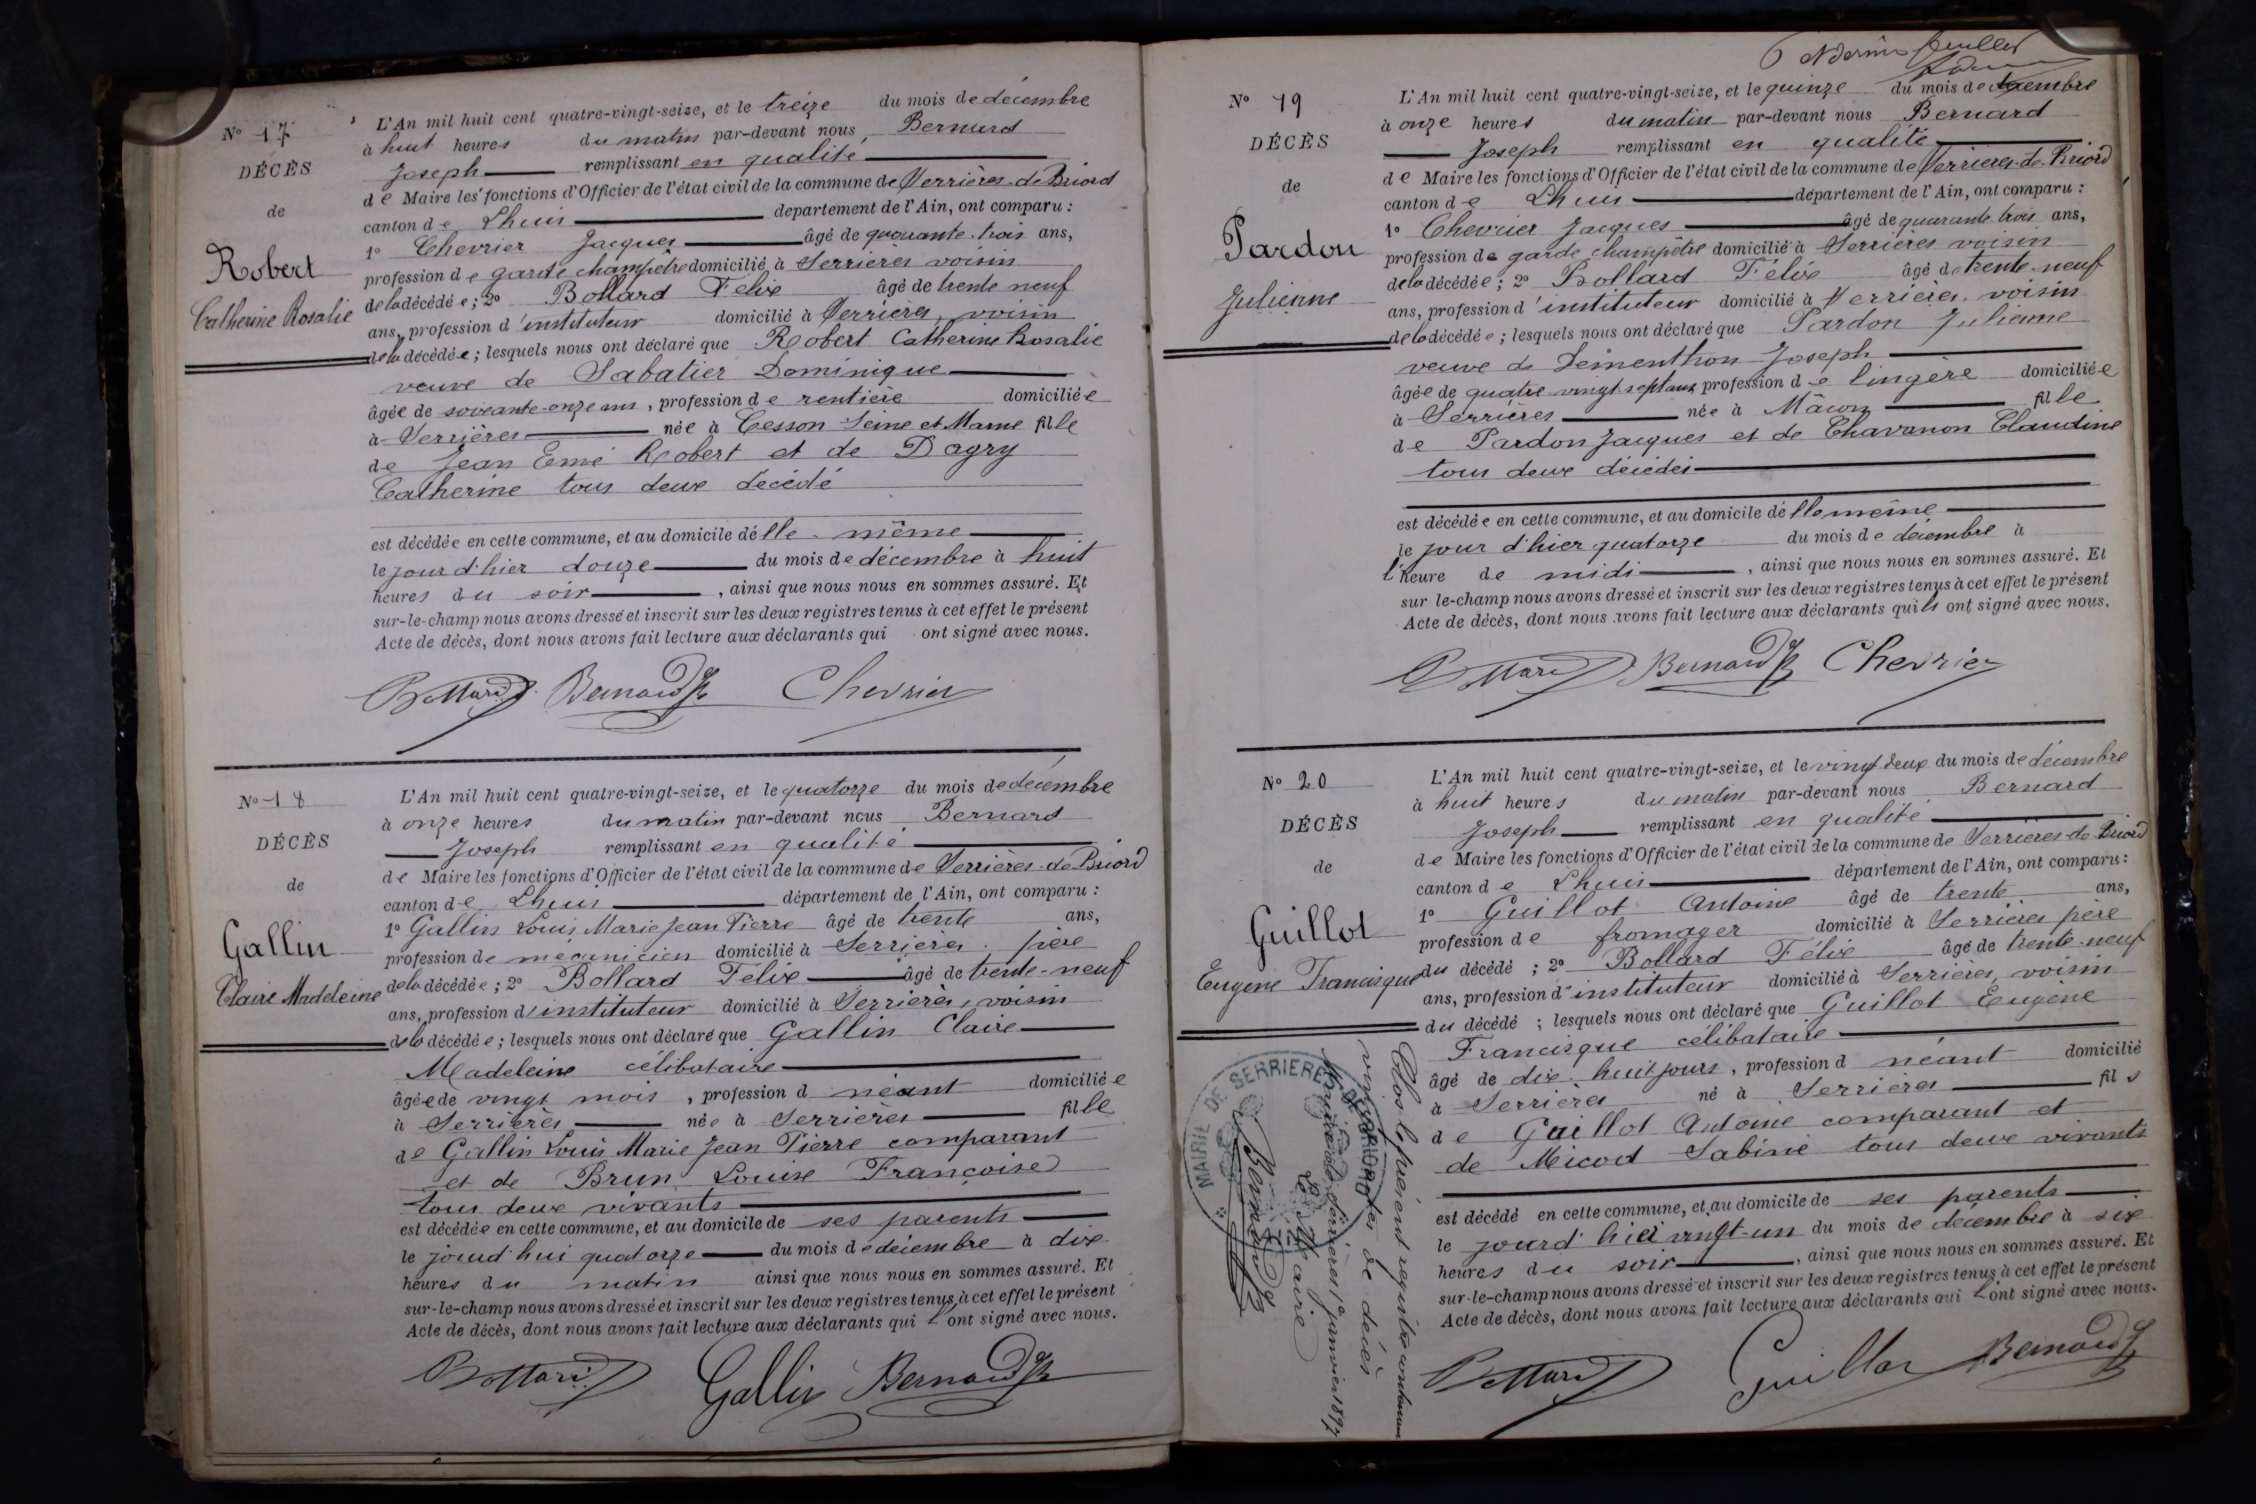 N° 17
DÉCÈS
de
Robert
Catherine Rosalie
L'An mil huit cent quatre-vingt-seize, et le treize du mois de décembre
à huit heures du matin par-devant nous Bernard
Joseph remplissant en qualité
de Maire les fonctions d'Officier de l'état civil de la commune de Serrières-de-Briord
canton de Lhuis département de l'Ain, ont comparu :
1° Chevrier Jacques âgé de quarante-trois ans,
profession de garde champêtre domicilié à Serrières voisin
de la décédée ; 2° Bollard Félix âgé de trente neuf
ans, profession d'instituteur domicilié à Serrières, voisin
de la décédée ; lesquels nous ont déclaré que Robert Catherine Rosalie
veuve de Sabatier Dominique
âgée de soixante-onze ans, profession de rentière domiciliée
à Serrières née à Cesson Seine et Marne fille
de Jean Emé Robert et de Dagry
Catherine tous deux décédé
est décédée en cette commune, et au domicile d'elle-même
le jour d'hier douze du mois de décembre à huit
heures du soir, ainsi que nous nous en sommes assuré. Et
sur-le-champ nous avons dressé et inscrit sur les deux registres tenus à cet effet le présent
Acte de décès, dont nous avons fait lecture aux déclarants qui ont signé avec nous.
Bollard Bernard Jh Chevrier
N° 18
DÉCÈS
de
Gallin
Claire Madeleine
L'An mil huit cent quatre-vingt-seize, et le quatorze du mois de décembre
à onze heures du matin par-devant nous Bernard
Joseph remplissant en qualité
de Maire les fonctions d'Officier de l'état civil de la commune de Serrières-de-Briord
canton de Lhuis département de l'Ain, ont comparu :
1° Gallin Louis Marie Jean Pierre âgé de trente ans,
profession de mécanicien domicilié à Serrières père
de la décédée ; 2° Bollard Félix âgé de trente-neuf
ans, profession d'instituteur domicilié à Serrières, voisin
de la décédée ; lesquels nous ont déclaré que Gallin Claire
Madeleine célibataire
âgée de vingt mois, profession d néant domiciliée
à Serrières née à Serrières fille
de Gallin Louis Marie Jean Pierre comparant
et de Brun Louise Françoise
tous deux vivants
est décédée en cette commune, et au domicile de ses parents
le jourd'hui quatorze du mois de décembre à dix
heures du matin ainsi que nous nous en sommes assuré. Et
sur-le-champ nous avons dressé et inscrit sur les deux registres tenus à cet effet le présent
Acte de décès, dont nous avons fait lecture aux déclarants qui ont signé avec nous.
Bollard Gallin Bernard Jh
N° 19
DÉCÈS
de
Pardon
Julienne
L'An mil huit cent quatre-vingt-seize, et le quinze du mois de décembre
à onze heures du matin par-devant nous Bernard
Joseph remplissant en qualité
de Maire les fonctions d'Officier de l'état civil de la commune de Serrières-de-Briord
canton de Lhuis département de l'Ain, ont comparu :
1° Chevrier Jacques âgé de quarante-trois ans,
profession de garde champêtre domicilié à Serrières voisin
de la décédée ; 2° Bollard Félix âgé de trente-neuf
ans, profession d'instituteur domicilié à Serrières, voisin
de la décédée ; lesquels nous ont déclaré que Pardon Julienne
veuve de Dementhon Joseph
âgée de quatre vingt sept ans, profession de lingère domiciliée
à Serrières née à Mâcon fille
de Pardon Jacques et de Chavanon Claudine
tous deux décédés
est décédée en cette commune, et au domicile d'elle même
le jour d'hier quatorze du mois de décembre à
l'heure de midi, ainsi que nous nous en sommes assuré. Et
sur le-champ nous avons dressé et inscrit sur les deux registres tenus à cet effet le présent
Acte de décès, dont nous avons fait lecture aux déclarants qui ont signé avec nous.
Bollard Bernard Jh Chevrier
N° 20
DÉCÈS
de
Guillot
Eugène Francisque
L'An mil huit cent quatre-vingt-seize, et le vingt-deux du mois de décembre
à huit heures du matin par-devant nous Bernard
Joseph remplissant en qualité
de Maire les fonctions d'Officier de l'état civil de la commune de Serrières-de-Briord
canton de Lhuis département de l'Ain, ont comparu :
1° Guillot Antoine âgé de trente ans,
profession de fromager domicilié à Serrières père
du décédé ; 2° Bollard Félix âgé de trente-neuf
ans, profession d'instituteur domicilié à Serrières, voisin
du décédé ; lesquels nous ont déclaré que Guillot Eugène
Francisque célibataire
âgé de dix huit jours, profession d néant domicilié
à Serrières né à Serrières fils
de Guillot Antoine comparant et
de Micod Sabine tous deux vivants
est décédé en cette commune, et au domicile de ses parents
le jourd'hier vingt-un du mois de décembre à six
heures du soir, ainsi que nous nous en sommes assuré. Et
sur-le-champ nous avons dressé et inscrit sur les deux registres tenus à cet effet le présent
Acte de décès, dont nous avons fait lecture aux déclarants qui ont signé avec nous.
Bollard Guillot Bernard Jh
Clos le présent registre contenant
vingt actes de décès
Serrières 1er janvier 1897
Le Maire
Bernard Jh
MAIRIE DE SERRIERES DE BRIORD